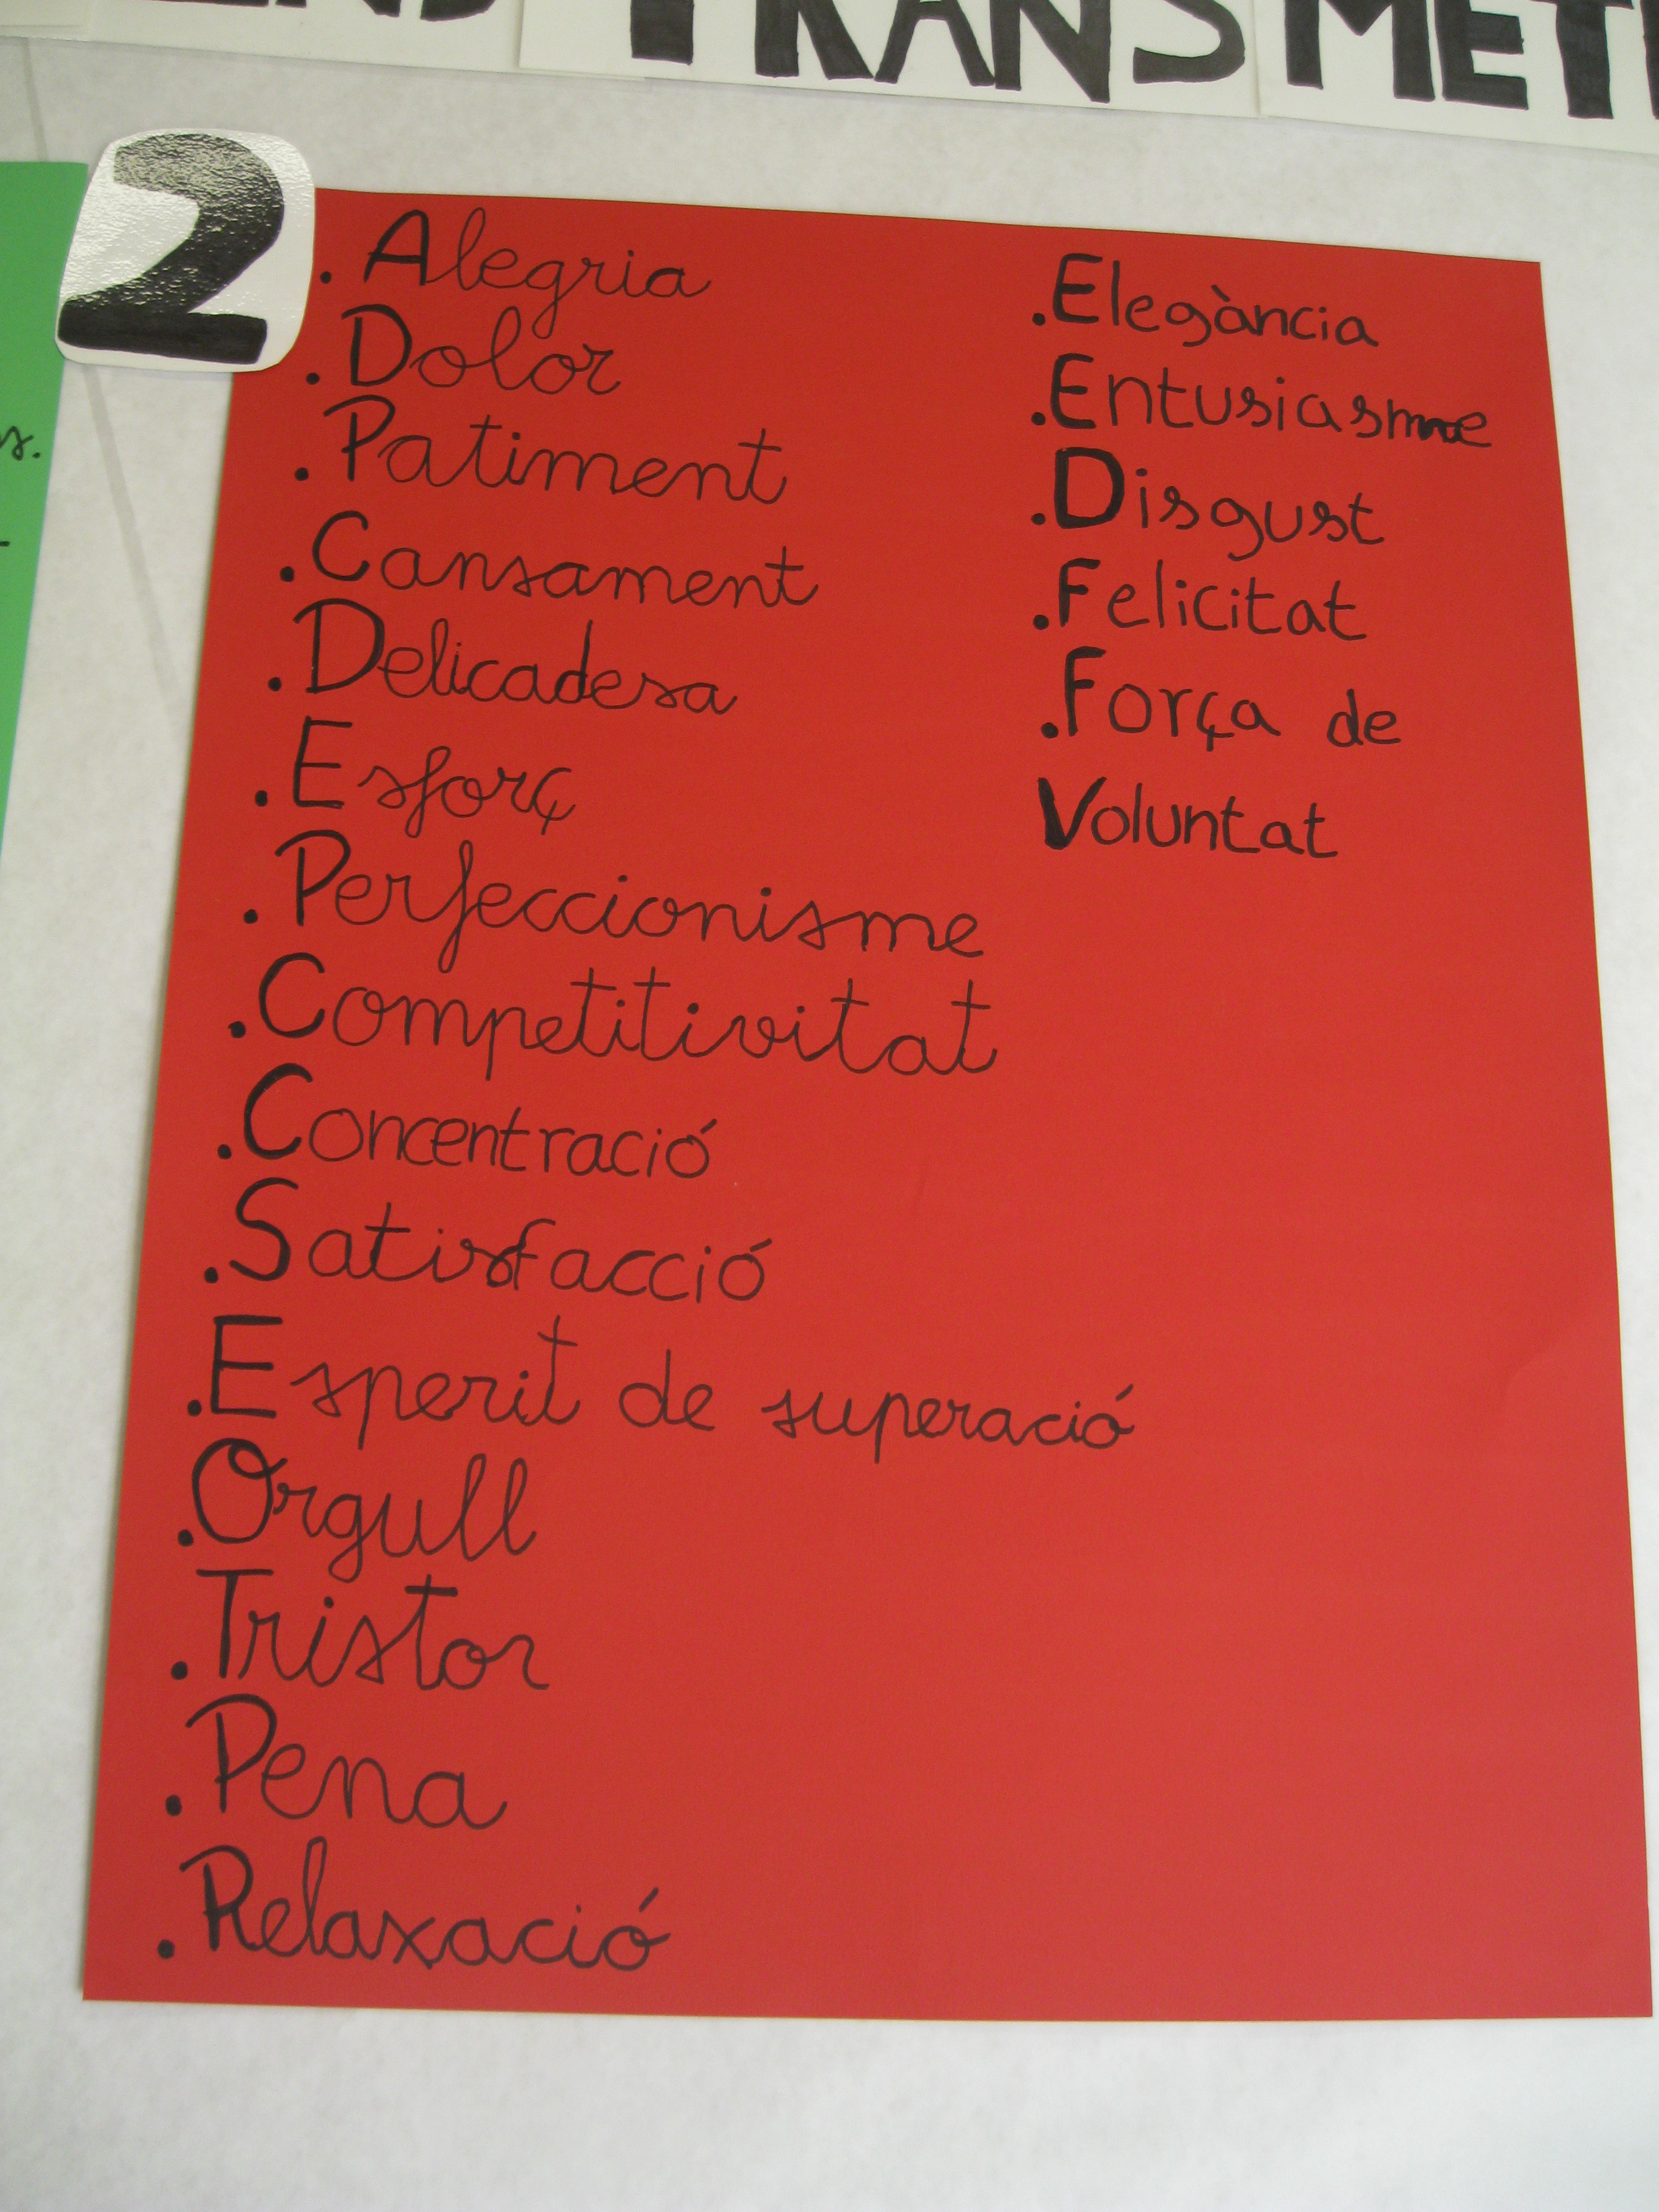 TRANSMET
2
. Alegria
. Dolor
. Patiment
. Cansament
. Delicadesa
. Esforç
. Perfeccionisme
. Competitivitat
. Concentració
. Satisfacció
. Esperit de superació
. Orgull
. Tristor
. Pena
. Relaxació
. Elegància
. Entusiasme
. Disgust
. Felicitat
. Força de
Voluntat